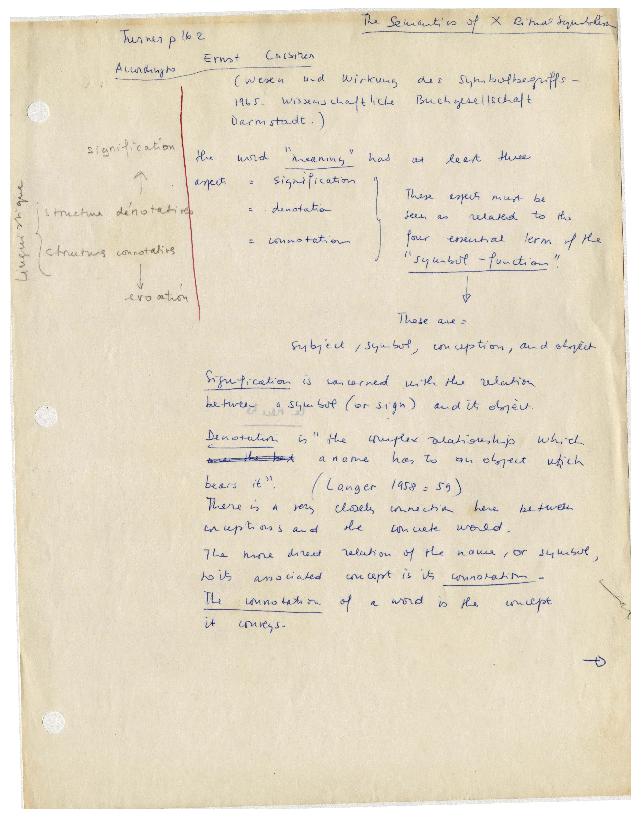 The Semantics of X Ritual Symbolism
Turner p 162
According to Ernst Cassirer
(Wesen und Wirkung des Symbolbegriffs -
1965. Wissenschaftliche Buchgesellschaft
Darmstadt.)
signification
the word "meaning" has at least three
aspects = signification
= denotation
= connotation
These aspects must be
seen as related to the
four essential term of the
"symbol-function".
linguistique
structure dénotatives
structures connotatives
evocation
These are =
subject, symbol, conception, and object
Signification is concerned with the relation
between a symbol (or sign) and its object.
Denotation is "the complex relationship which
a name has to an object which
bears it". (Langer 1958 = 59)
There is a very closely connection here between
conceptions and the concrete world.
The more direct relation of the name, or symbol,
to its associated concept is its connotation -
The connotation of a word is the concept
it conveys.